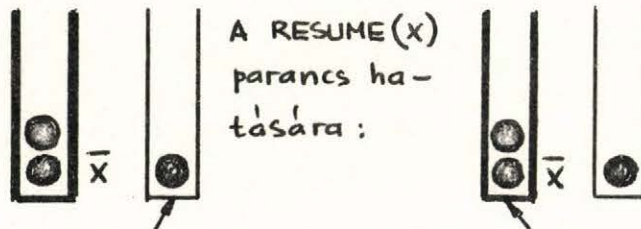 A RESUME(X)
parancs ha-
tására:
X̄
X̄